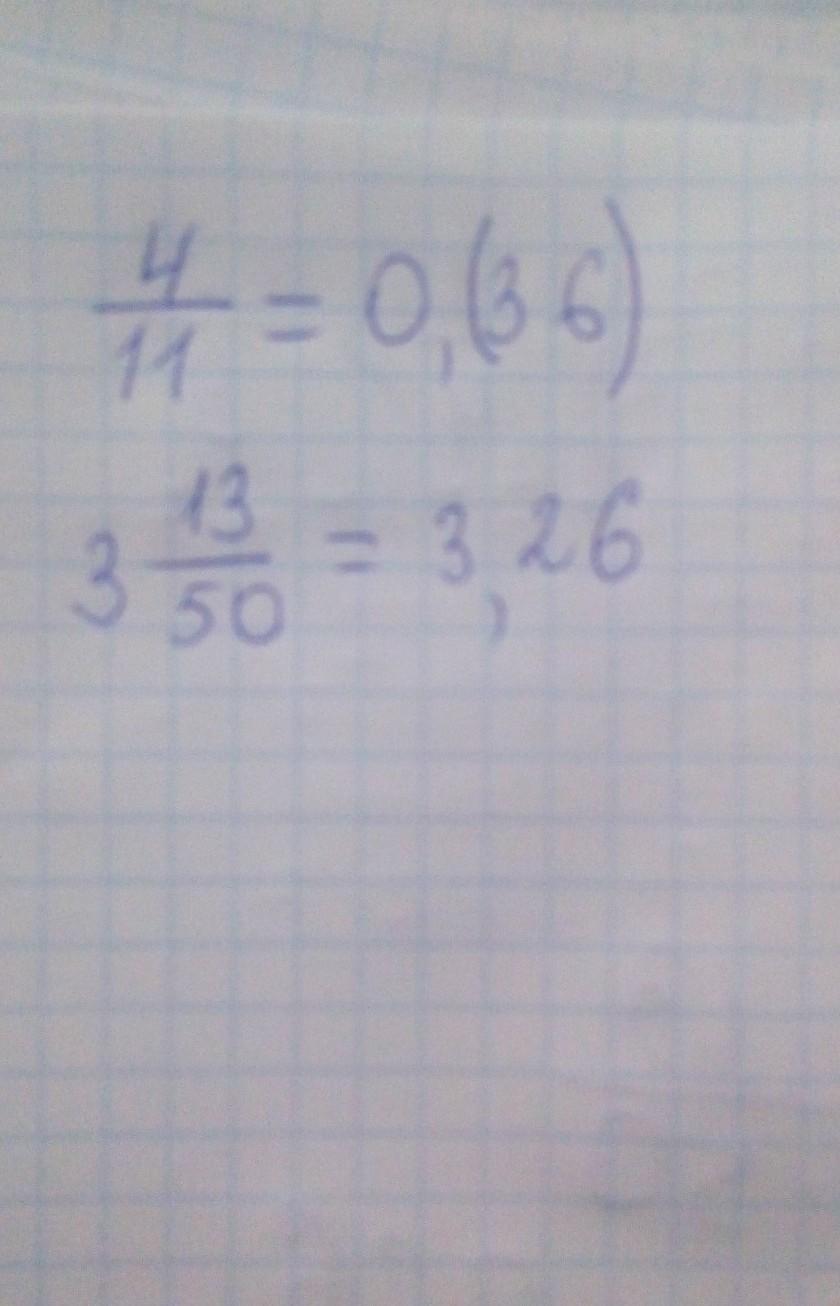 4/11 = 0,(36)
3 13/50 = 3,26